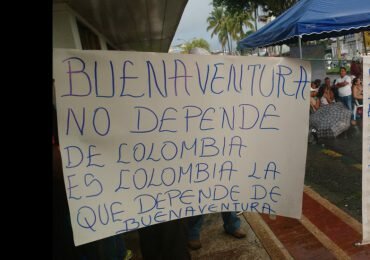 BUENAVENTURA
NO DEPENDE
DE COLOMBIA
ES COLOMBIA LA
QUE DEPENDE DE
BUENAVENTURA